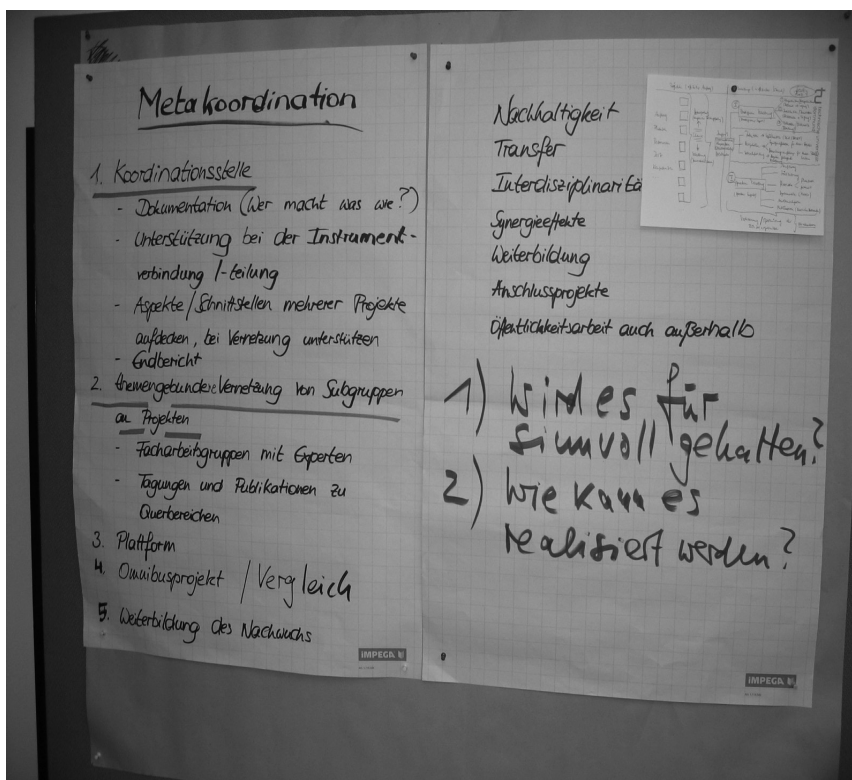 Metakoordination
1. Koordinationsstelle
- Dokumentation (Wer macht was wie?)
- Unterstützung bei der Instrument-
verbindung /-teilung
- Aspekte/Schnittstellen mehrerer Projekte
aufdecken, bei Vernetzung unterstützen
- Endbericht
2. themengebundene Vernetzung von Subgruppen
an Projekten
- Facharbeitsgruppen mit Experten
- Tagungen und Publikationen zu
Querbereichen
3. Plattform
4. Omnibusprojekt / Vergleich
5. Weiterbildung des Nachwuchs
IMPEGA
Nachhaltigkeit
Transfer
Interdisziplinaritä
Synergieeffekte
Weiterbildung
Anschlussprojekte
Öffentlichkeitsarbeit auch außerhalb
1) Wird es für
sinnvoll gehalten?
2) Wie kann es
realisiert werden?
IMPEGA
tu